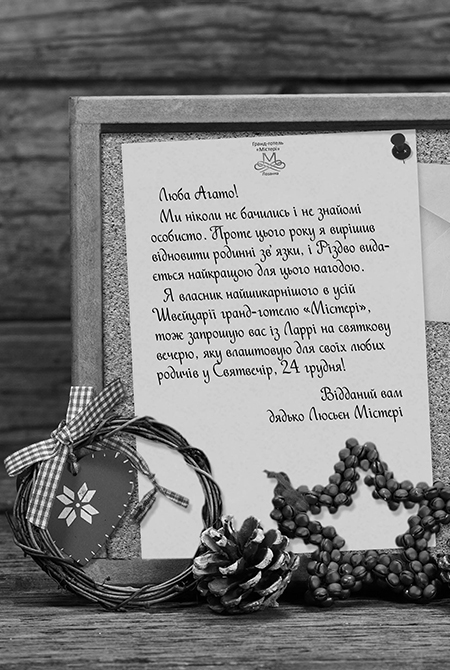 Гранд-готель
«Містері»
М
Лозанна
Люба Агато!
Ми ніколи не бачились і не знайомі
особисто. Проте цього року я вирішив
відновити родинні зв’язки, і Різдво вида-
ється найкращою для цього нагодою.
Я власник найшикарнішого в усій
Швейцарії гранд-готелю «Містері»,
тож запрошую вас із Ларрі на святкову
вечерю, яку влаштовую для своїх любих
родичів у Святвечір, 24 грудня!
Відданий вам
дядько Люсьєн Містері